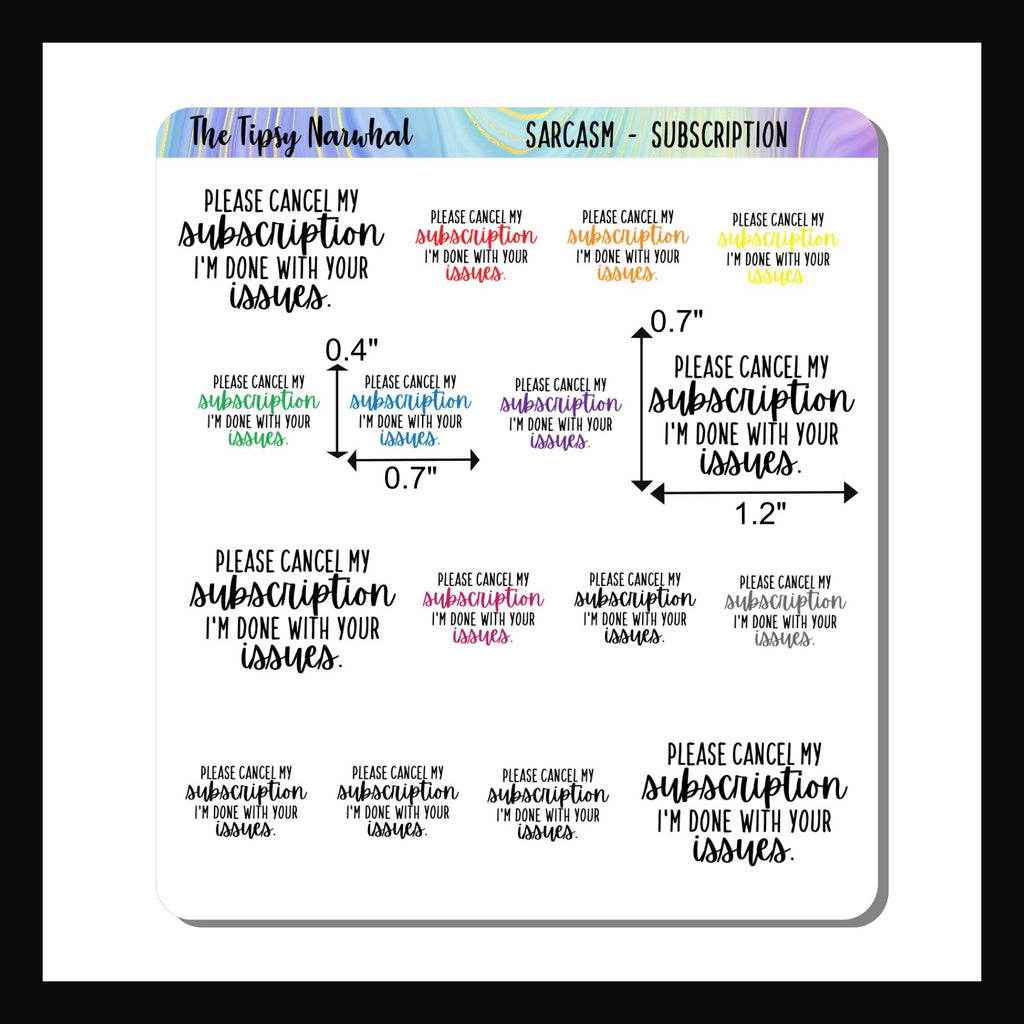 The Tipsy Narwhal
SARCASM - SUBSCRIPTION
PLEASE CANCEL MY
subscription
I'M DONE WITH YOUR
issues.
PLEASE CANCEL MY
subscription
I'M DONE WITH YOUR
issues.
PLEASE CANCEL MY
subscription
I'M DONE WITH YOUR
issues.
PLEASE CANCEL MY
subscription
I'M DONE WITH YOUR
issues.
PLEASE CANCEL MY
subscription
I'M DONE WITH YOUR
issues.
0.4"
PLEASE CANCEL MY
subscription
I'M DONE WITH YOUR
issues.
0.7"
PLEASE CANCEL MY
subscription
I'M DONE WITH YOUR
issues.
0.7"
PLEASE CANCEL MY
subscription
I'M DONE WITH YOUR
issues.
1.2"
PLEASE CANCEL MY
subscription
I'M DONE WITH YOUR
issues.
PLEASE CANCEL MY
subscription
I'M DONE WITH YOUR
issues.
PLEASE CANCEL MY
subscription
I'M DONE WITH YOUR
issues.
PLEASE CANCEL MY
subscription
I'M DONE WITH YOUR
issues.
PLEASE CANCEL MY
subscription
I'M DONE WITH YOUR
issues.
PLEASE CANCEL MY
subscription
I'M DONE WITH YOUR
issues.
PLEASE CANCEL MY
subscription
I'M DONE WITH YOUR
issues.
PLEASE CANCEL MY
subscription
I'M DONE WITH YOUR
issues.